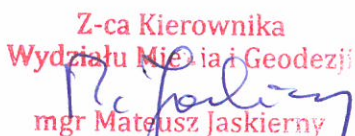 Z-ca Kierownika
Wydziału Mienia i Geodezji
mgr Mateusz Jaskierny